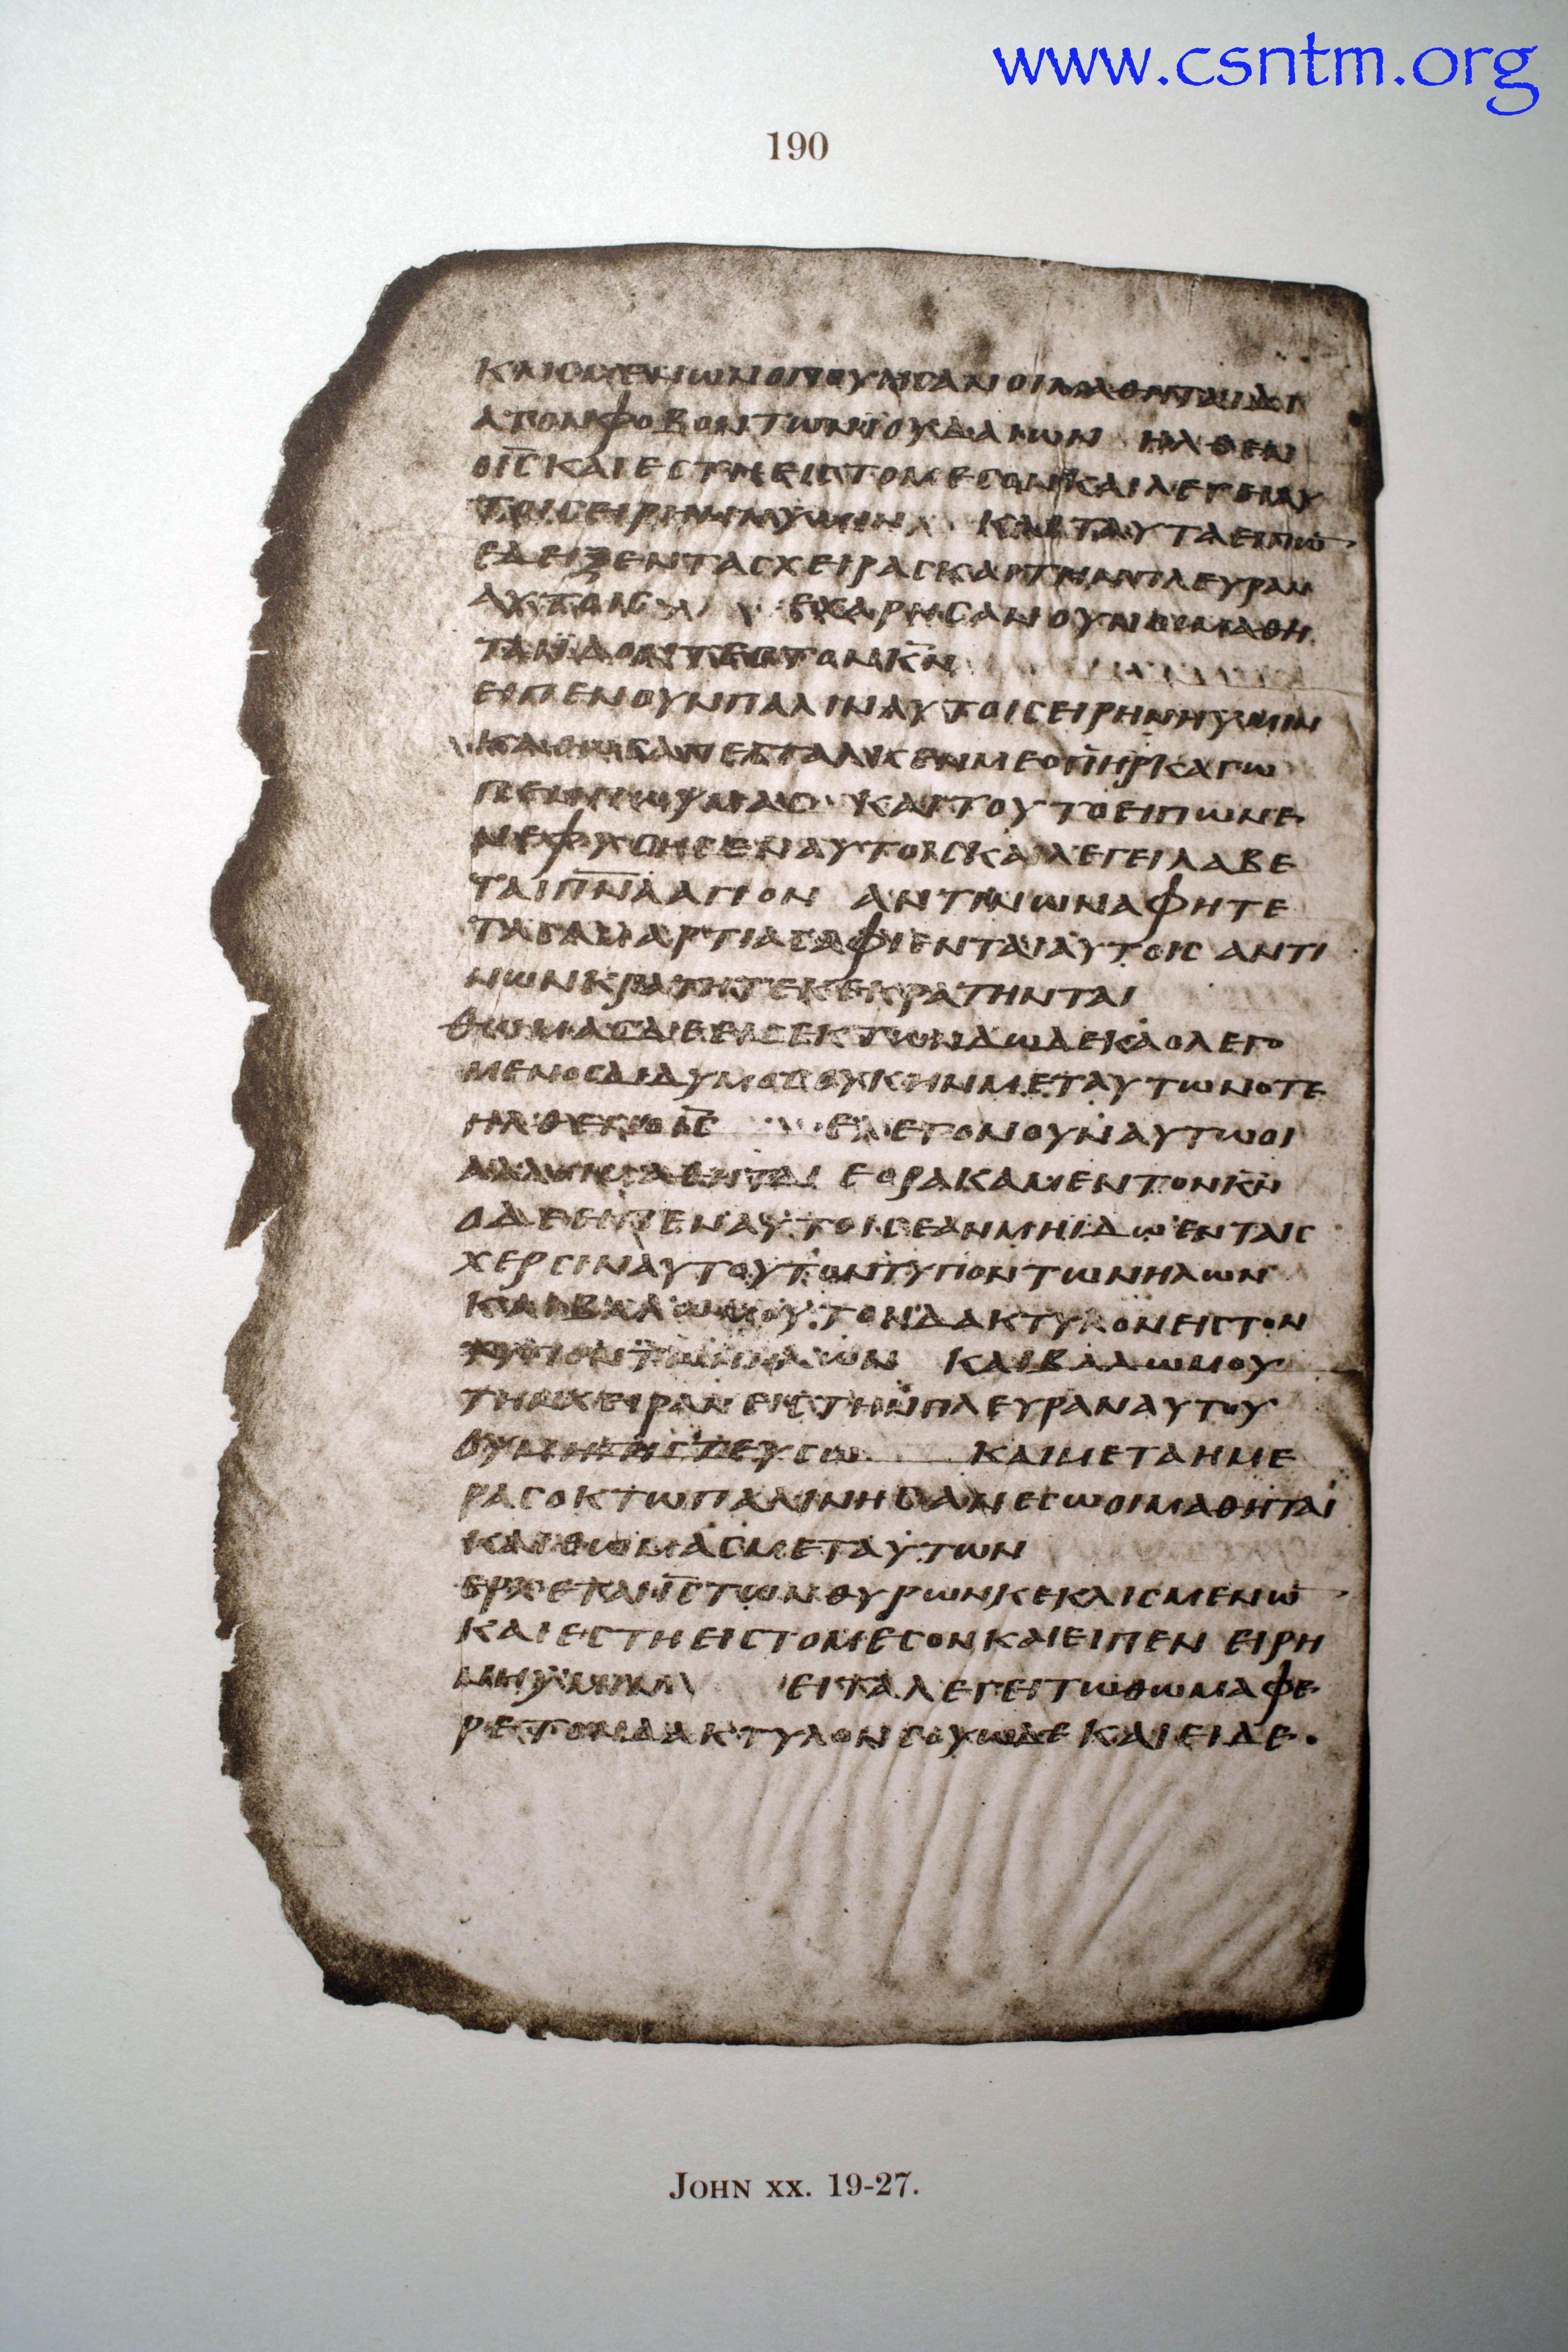 www.csntm.org
190
ΚΛΙCΜΕΝΩΝΟΠΟΥΗCΑΝΟΙΜΑΘΗΤΑΙΔΙ
ΑΤΟΝΦΟΒΟΝΤΩΝΙΟΥΔΑΙΩΝ ΗΛΘΕΝ
ΟΙ̅C̅ΚΑΙΕCΤΗΕΙCΤΟΜΕCΟΝΚΑΙΛΕΓΕΙΑΥ
ΤΟΙCΕΙΡΗΝΗΥΜΙΝ ΚΑΙΤΑΥΤΑΕΙΠΩ̅
ΕΔΕΙΞΕΝΤΑCΧΕΙΡΑCΚΑΙΤΗΝΠΛΕΥΡΑΝ
ΑΥΤΟΙC ΕΧΑΡΗCΑΝΟΥΝΟΙΜΑΘΗ
ΤΑΙΙΔΟΝΤΕCΤΟΝΚ̅Ν̅
ΕΙΠΕΝΟΥΝΠΑΛΙΝΑΥΤΟΙCΕΙΡΗΝΗΥΜΙΝ
ΚΑΘΩCΑΠΕCΤΑΛΚΕΝΜΕΟΠ̅Η̅Ρ̅ΚΑΓΩ
ΠΕΜΠΩΥΜΑC ΚΑΙΤΟΥΤΟΕΙΠΩΝΕ
ΝΕΦΥCΗCΕΝΑΥΤΟΙCΚΑΙΛΕΓΕΙΛΑΒΕ
ΤΑΙΠ̅Ν̅Α̅ΑΓΙΟΝ ΑΝΤΙΝΩΝΑΦΗΤΕ
ΤΑCΑΜΑΡΤΙΑCΑΦΙΟΝΤΑΙΑΥΤΟΙC ΑΝΤΙ
ΝΩΝΚΡΑΤΗΤΕΚΕΚΡΑΤΗΝΤΑΙ
ΘΩΜΑCΔΕΕΙCΕΚΤΩΝΔΩΔΕΚΑΟΛΕΓΟ
ΜΕΝΟCΔΙΔΥΜΟCΟΥΚΗΝΜΕΤΑΥΤΩΝΟΤΕ
ΗΛΘΕΝΟΙ̅C̅ ΕΛΕΓΟΝΟΥΝΑΥΤΩΟΙ
ΑΛΛΟΙΜΑΘΗΤΑΙ ΕΟΡΑΚΑΜΕΝΤΟΝΚ̅Ν̅
ΟΔΕΕΙΠΕΝΑΥΤΟΙCΕΑΝΜΗΙΔΩΕΝΤΑΙC
ΧΕΡCΙΝΑΥΤΟΥΤΟΝΤΥΠΟΝΤΩΝΗΛΩΝ
ΚΑΙΒΑΛΩΜΟΥΤΟΝΔΑΚΤΥΛΟΝΕΙCΤΟΝ
ΤΥΠΟΝΤΩΝΗΛΩΝ ΚΑΙΒΑΛΩΜΟΥ
ΤΗΝΧΕΙΡΑΝΕΙCΤΗΝΠΛΕΥΡΑΝΑΥΤΟΥ
ΟΥΜΗΠΙCΤΕΥCΩ ΚΑΙΜΕΤΑΗΜΕ
ΡΑCΟΚΤΩΠΑΛΙΝΗCΑΝΕCΩΟΙΜΑΘΗΤΑΙ
ΚΑΙΘΩΜΑCΜΕΤΑΥΤΩΝ
ΕΡΧΕΤΑΙΙ̅C̅ΤΩΝΘΥΡΩΝΚΕΚΛΙCΜΕΝΩ̅
ΚΑΙΕCΤΗΕΙCΤΟΜΕCΟΝΚΑΙΕΙΠΕΝ ΕΙΡΗ
ΝΗΥΜΙΝ ΕΙΤΑΛΕΓΕΙΤΩΘΩΜΑΦΕ
ΡΕΤΟΝΔΑΚΤΥΛΟΝCΟΥΩΔΕΚΑΙΕΙΔΕ·
JOHN XX. 19-27.